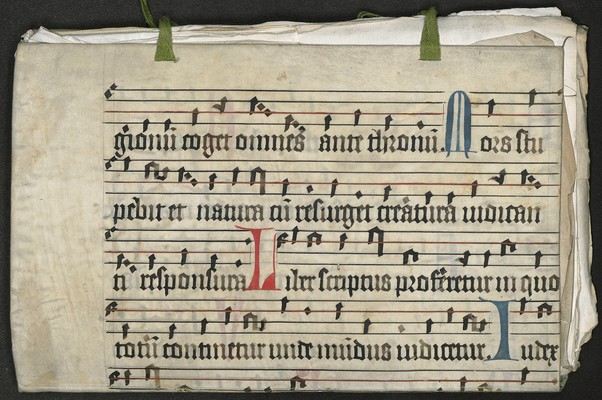 gionū coget omnes ante thronū. Mors stu
pebit et natura cū resurget creatura iudican
ti responsura Liber scriptus proferetur in quo
totū continetur unde mūdus iudicetur. Iudex